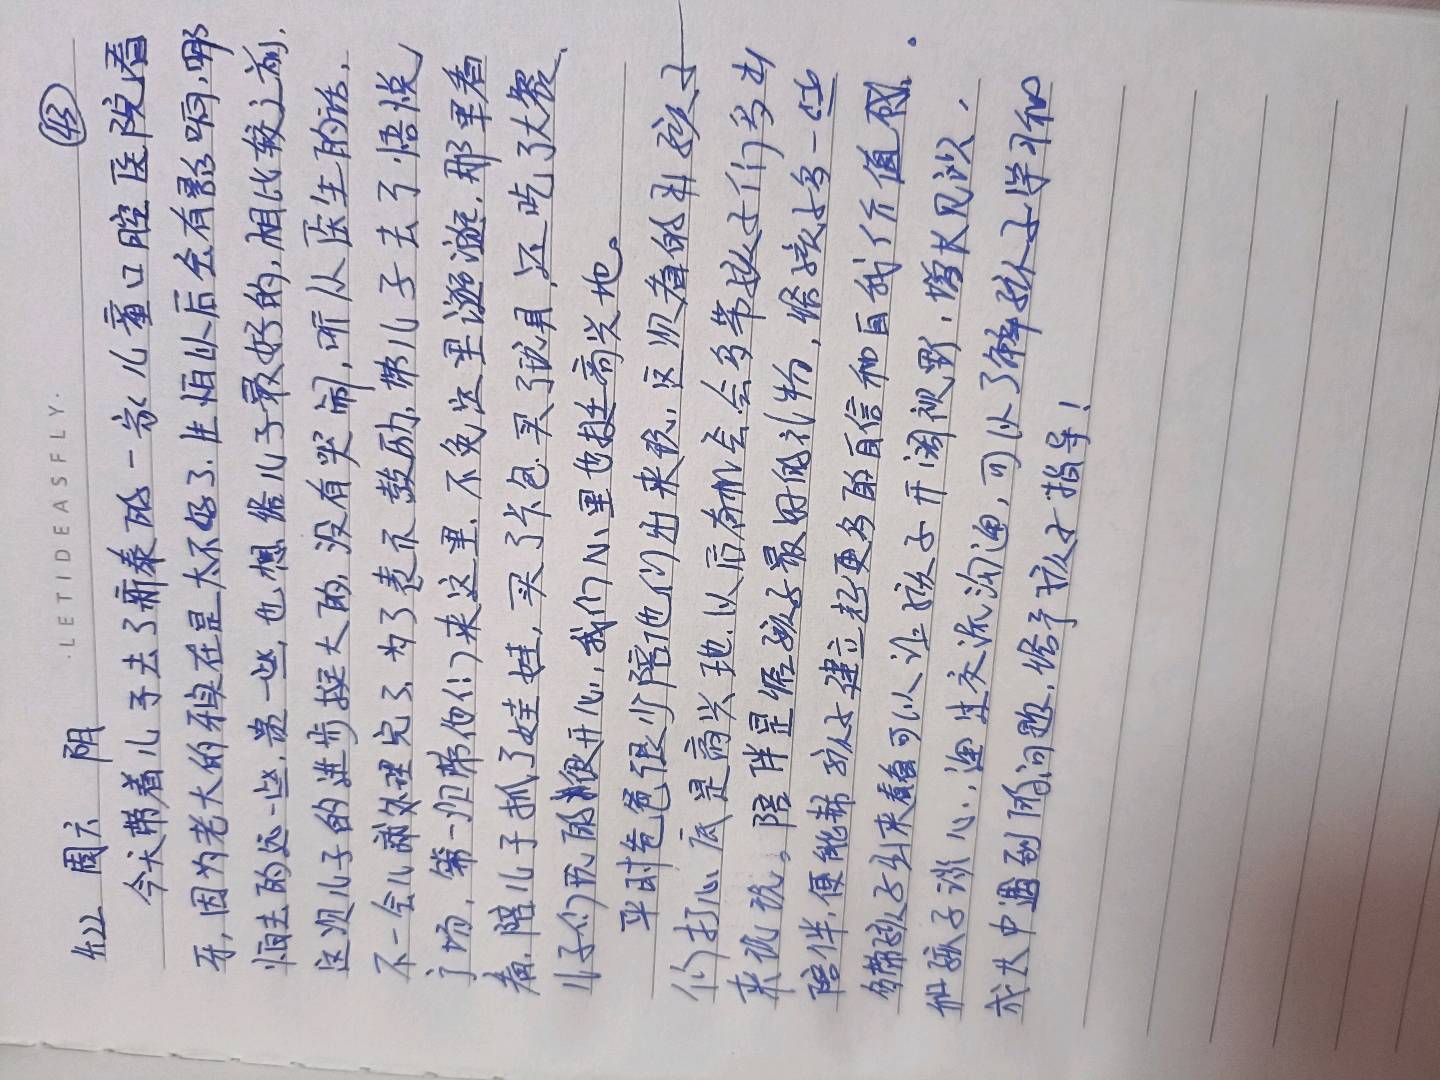 ·LETIDEASFLY·
43
4.22 周六 阴
今天带着儿子去了新泰的一家儿童口腔医院看
牙,因为老大的牙实在是太不好了.生怕以后会有影响,哪
怕去的远一些,贵一些,也想给儿子最好的,相比较之前,
这次儿子的进步挺大的,没有哭闹,听从医生的话,
不一会儿就处理完了.为了表示鼓励,带儿子去了悟悦
广场,第一次带他们来这里.不免这里逛逛.那里看
看.陪儿子抓了娃娃,买了卡包.买了玩具,还吃了大餐.
儿子们玩的很开心,我们心里也挺高兴地。
平时爸爸很少陪他们出来玩.这次真的刷孩子
们打心底是高兴地.以后有机会会多带孩子们多出
来玩玩。陪伴是给孩子最好的礼物,给孩子多一些
陪伴.便能帮孩子建立起更多的自信和自我价值观.
多带孩子出来看看可以让孩子开阔视野,增长见识,
和孩子谈心,通过交流沟通,可以了解孩子学习和
成长中遇到的问题.给予孩子指导!